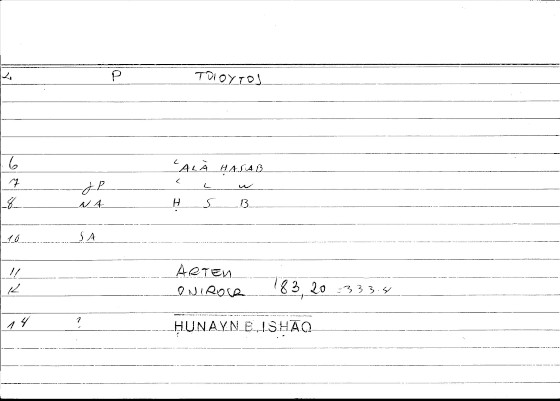 4 P ΤΟΙΟΥΤΟΣ
6 ʿALĀ ḤASAB
7 JP ʿ L W
8 NA Ḥ S B
10 SA
11 ARTEM
12 ONIROCR 183,20 =333.4
14 ? ḤUNAYN B. ISḤĀQ